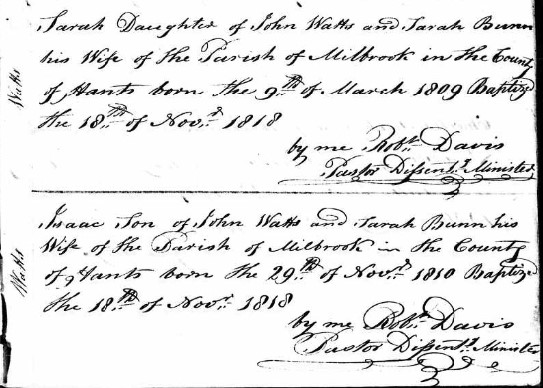 Watts
Sarah Daughter of John Watts and Sarah Bunn
his Wife of the Parish of Milbrook in the County
of Hants born the 9th of March 1809 Baptized
the 18th of Novr 1818
by me Robt Davis
Pastor Dissentg Minister
Watts
Isaac Son of John Watts and Sarah Bunn his
Wife of the Parish of Milbrook in the County
of Hants born the 29th of Novr 1810 Baptized
the 18th of Novr 1818
by me Robt Davis
Pastor Dissentg Minister